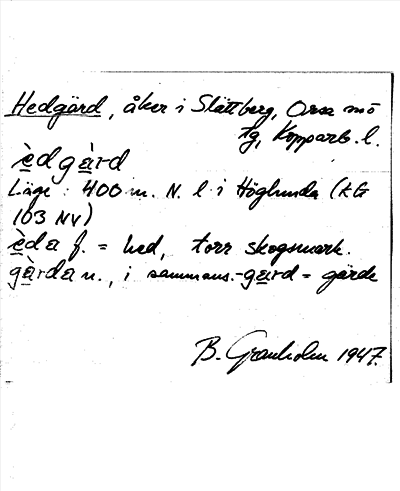 Hedgärd, åker i Slättberg, Orsa
tg, Kopparb. l.
èdgàrd
Läge: 400 m. N. l. i Höglunda (kG
103 NV)
èda f. = hed, torr skogsmark.
gàrda n., i sammans. -gard = gärde
B. Granholm 1947.